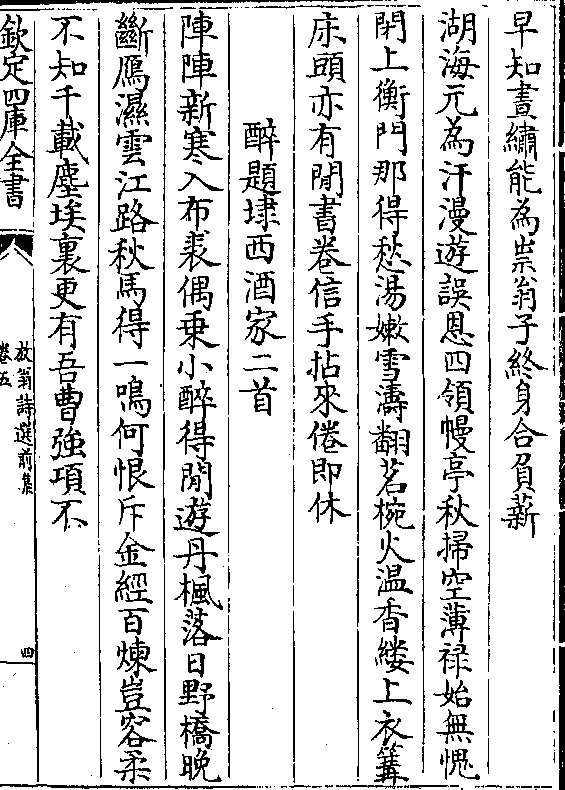 早知晝繡能為祟翁子終身合負薪
湖海元為汗漫遊誤恩四領幔亭秋掃空薄祿始無愧
閉上衡門那得愁湯嫩雪濤翻茗椀火温香縷上衣篝
床頭亦有閒書卷信手拈來倦即休
醉題埭西酒家二首
陣陣新寒入布裘偶乗小醉得閒遊丹楓落日野橋晚
斷鴈濕雲江路秋馬得一鳴何恨斥金經百煉豈容柔
不知千載塵埃裏更有吾曹強項不
欽定四庫全書
放翁詩選前集
卷五
四